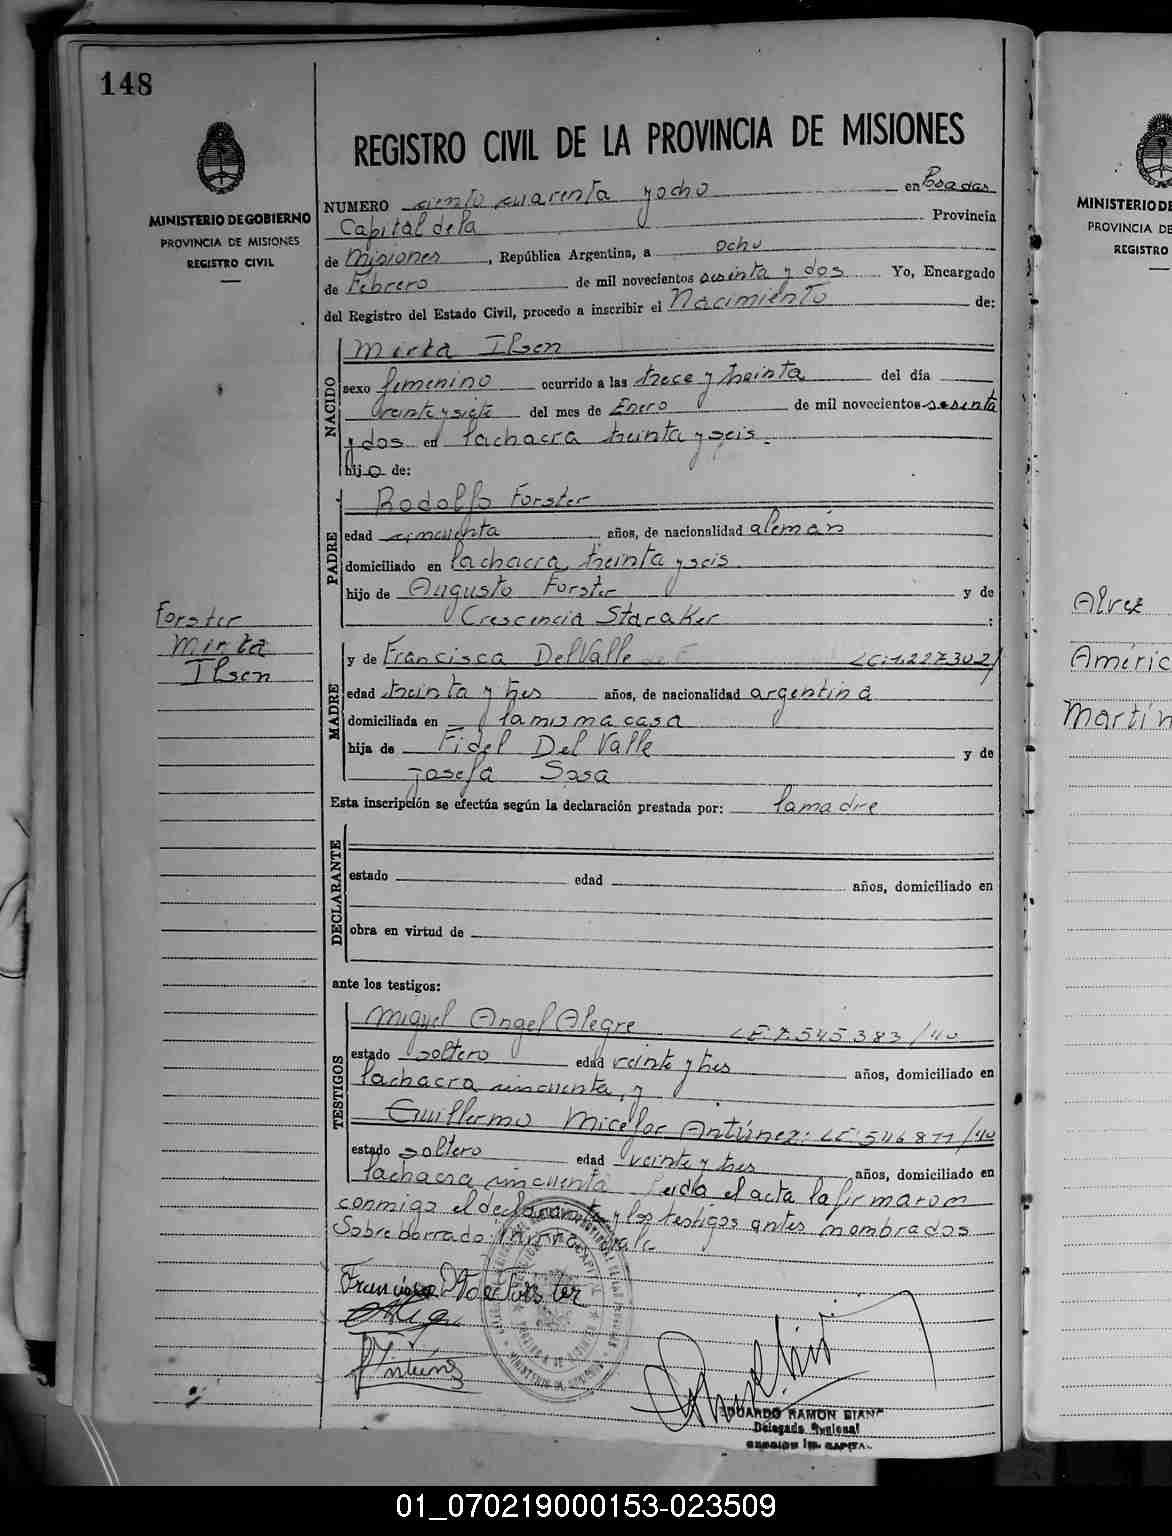 148
MINISTERIO DE GOBIERNO
PROVINCIA DE MISIONES
REGISTRO CIVIL
REGISTRO CIVIL DE LA PROVINCIA DE MISIONES
NUMERO ciento cuarenta y ocho en Posadas
Capital de la Provincia
de Misiones, República Argentina, a ocho
de Febrero de mil novecientos sesenta y dos Yo, Encargado
del Registro del Estado Civil, procedo a inscribir el Nacimiento de:
NACIDO
Mirta Ilsen
sexo femenino ocurrido a las trece y treinta del día
veinte y siete del mes de Enero de mil novecientos sesenta
y dos en la chacra treinta y seis.
hijo de:
PADRE
Rodolfo Forster
edad cincuenta años, de nacionalidad alemán
domiciliado en la chacra treinta y seis
hijo de Augusto Forster y de
Crescencia Staraker :
Forster
Mirta
Ilsen
MADRE
y de Francisca Del Valle LC:1.227.302/
edad treinta y tres años, de nacionalidad argentina
domiciliada en la misma casa
hija de Fidel Del Valle y de
Josefa Sosa
Esta inscripción se efectúa según la declaración prestada por: la madre
DECLARANTE
estado edad años, domiciliado en
obra en virtud de
ante los testigos:
TESTIGOS
Miguel Angel Alegre LE.7.545.383/40
estado soltero edad veinte y tres años, domiciliado en
la chacra cincuenta, y
Guillermo Antúnez: LE 546877/40
estado soltero edad veinte y tres años, domiciliado en
la chacra cincuenta Leida el acta la firmaron
conmigo el declarante y los testigos antes nombrados
Sobre borrado: vale
Francisca D V de Forster
Antúnez
EDUARDO RAMON BIANC
Delegado
MINISTERIO DE
REGISTRO
Alvez
Améric
Martín
01_070219000153-023509